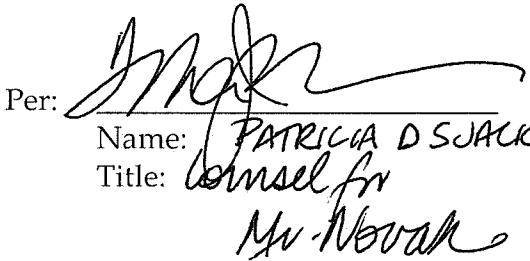 Per:
Name: PATRICIA D SJACK
Title: Counsel for
Mr. Novak